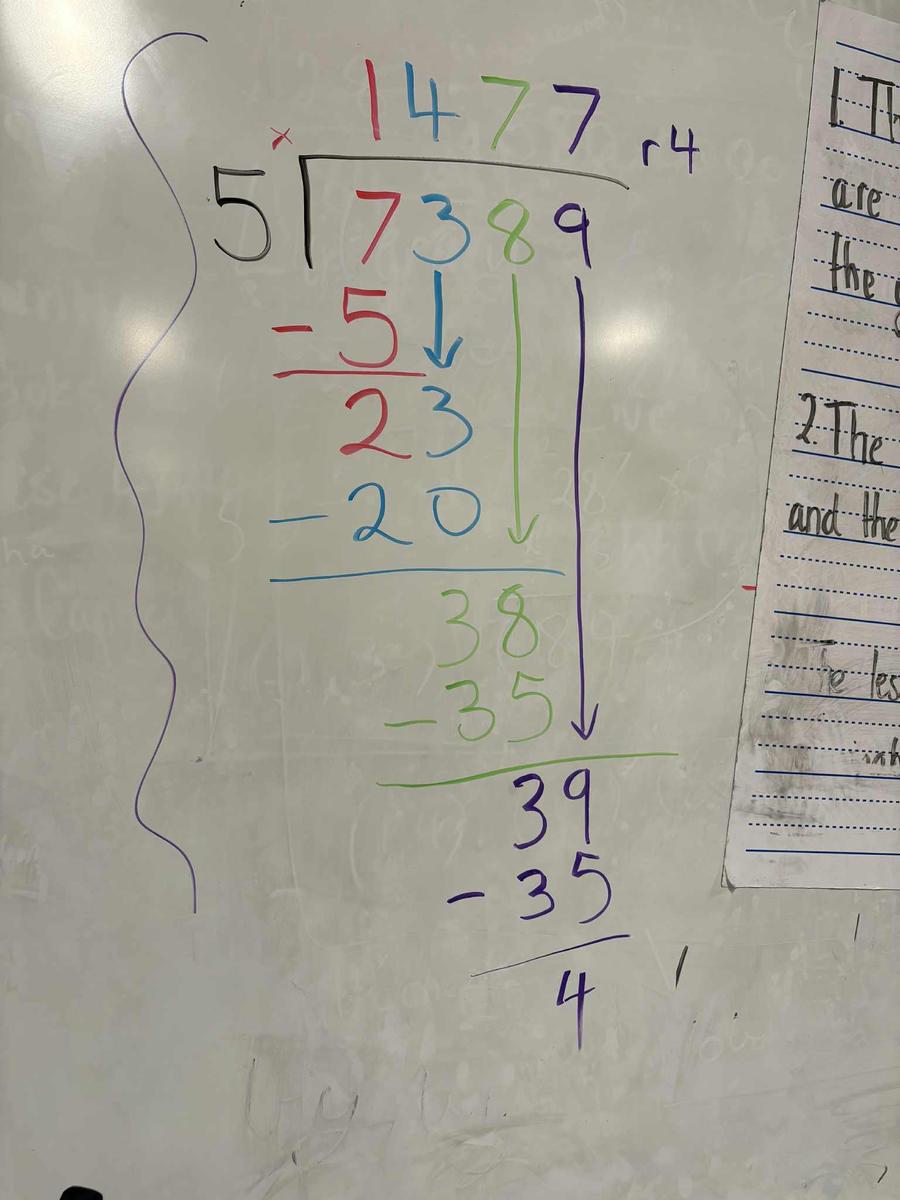 1477 r4
×
5 7389
-5
23
-20
38
-35
39
-35
4
1. Th
are
the
2. The
and the
les